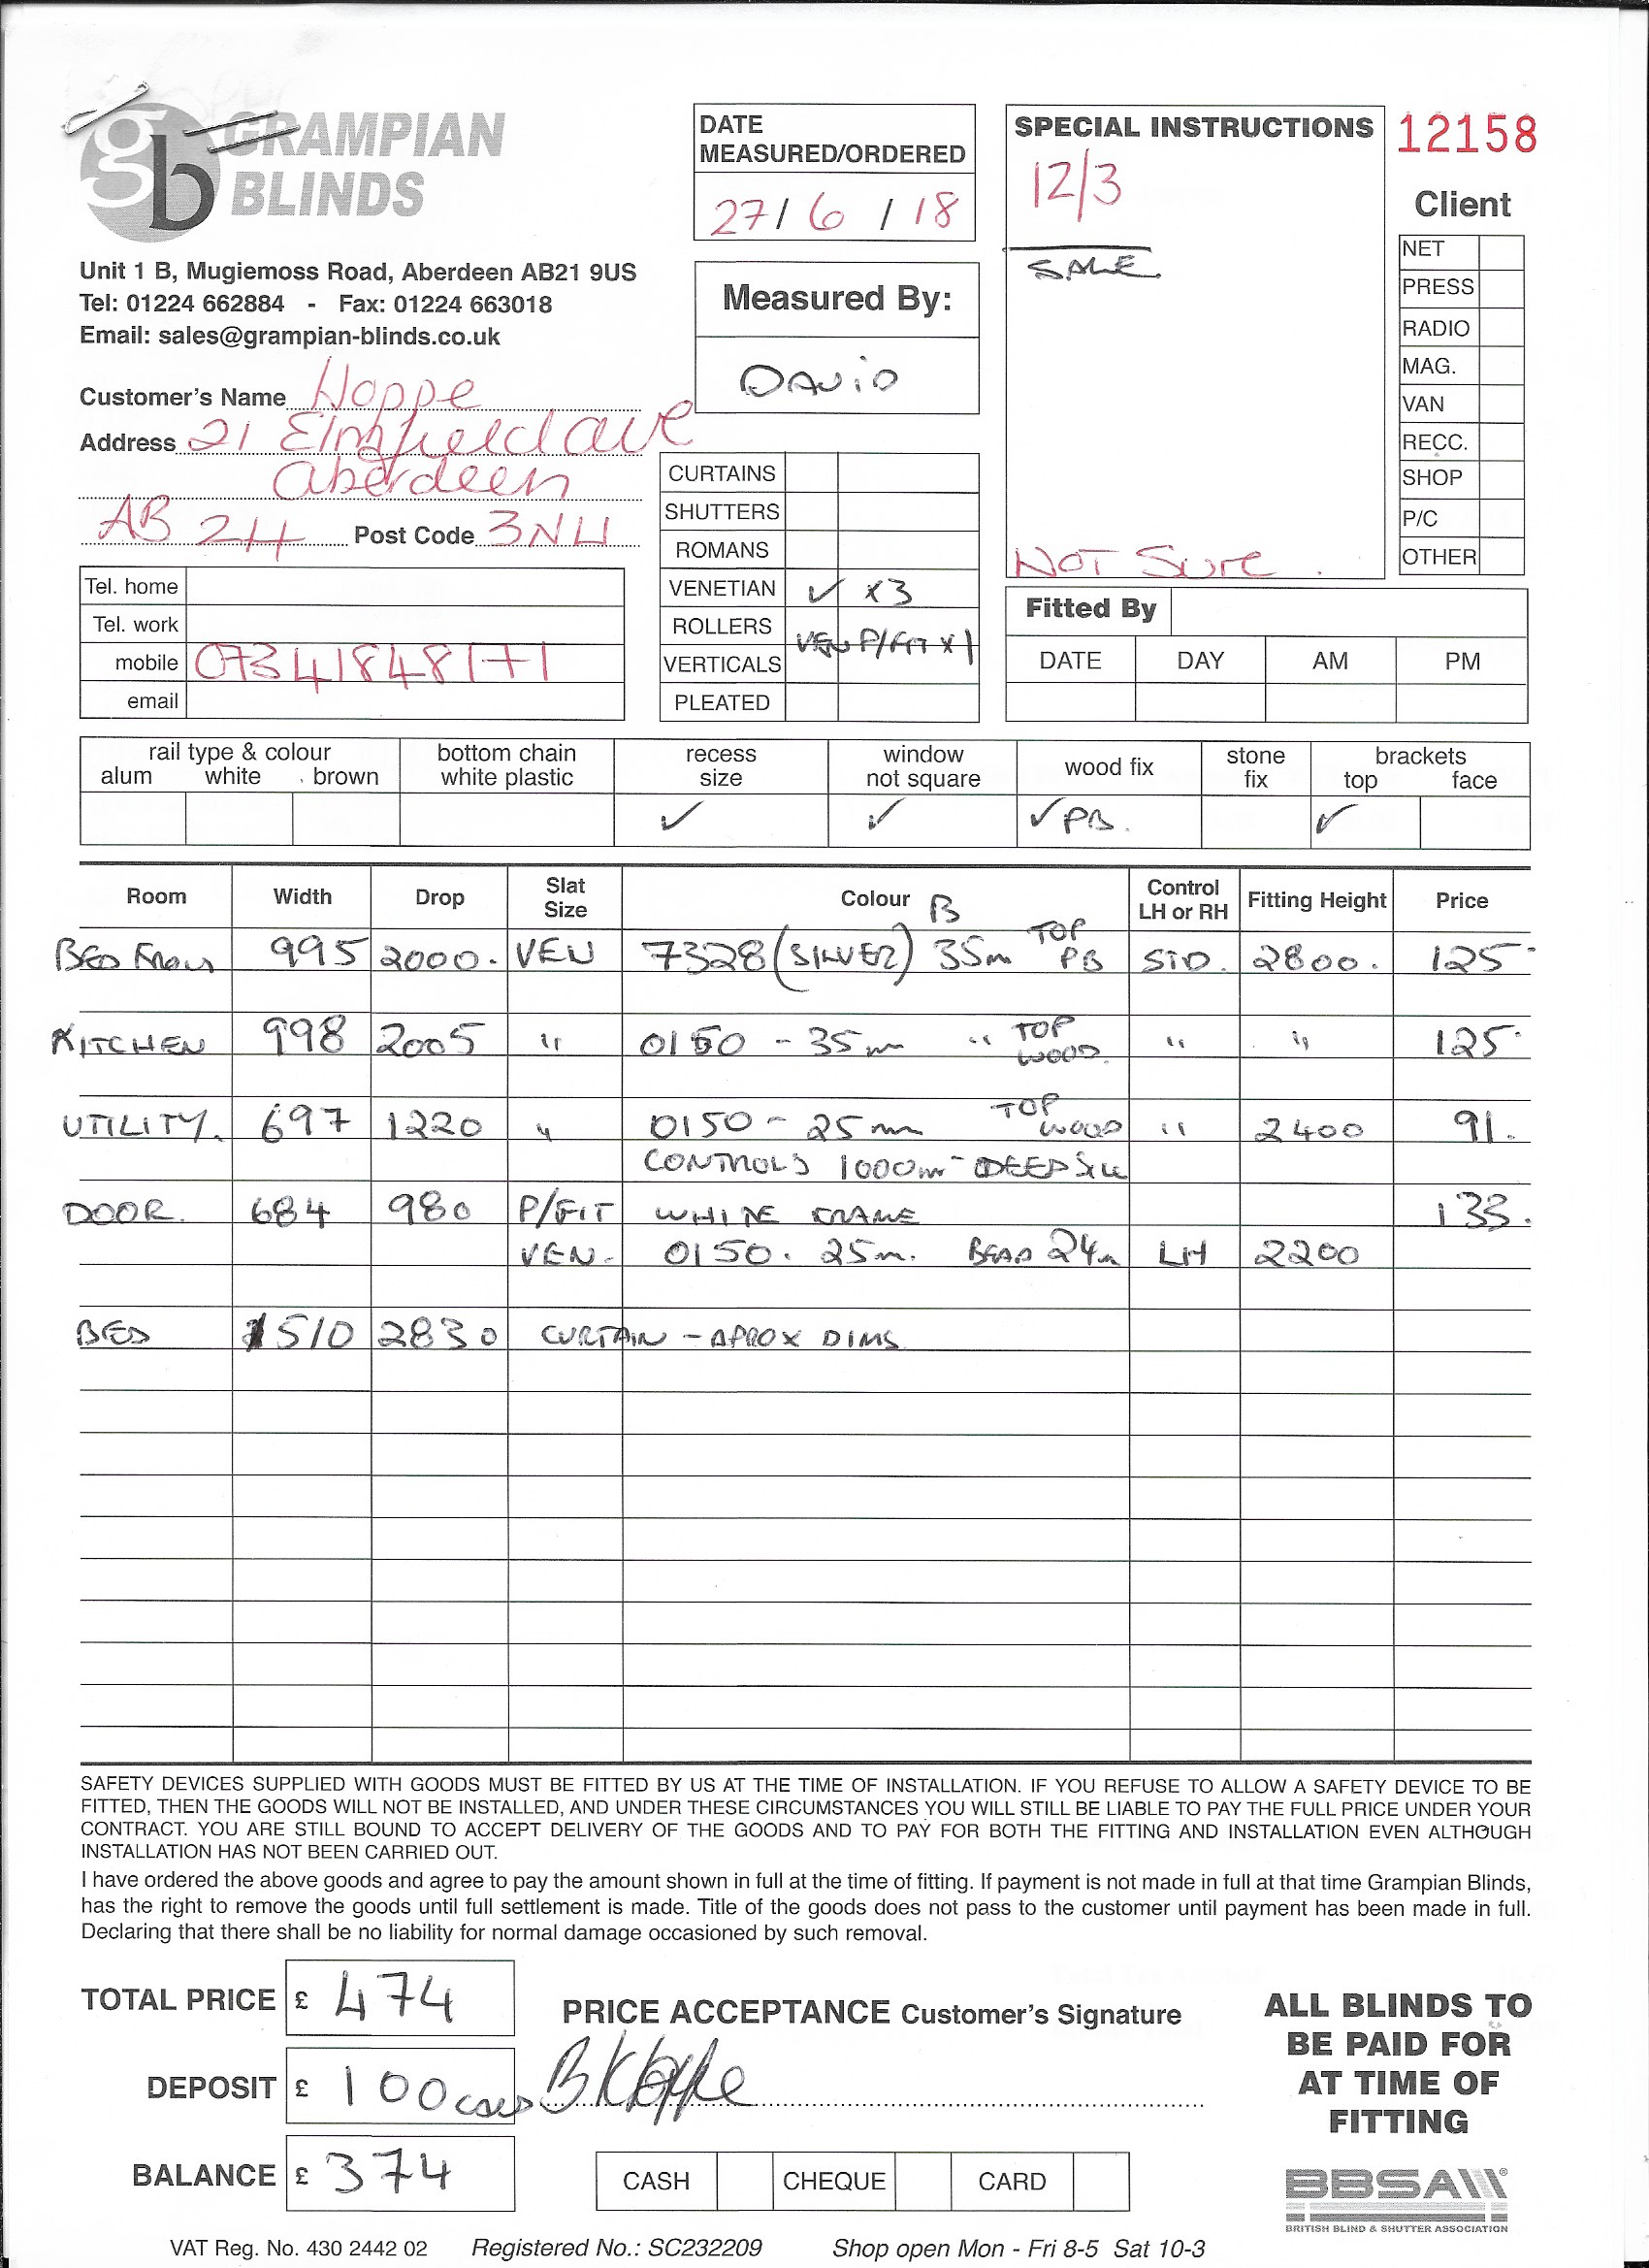 gb GRAMPIAN
BLINDS
Unit 1 B, Mugiemoss Road, Aberdeen AB21 9US
Tel: 01224 662884 - Fax: 01224 663018
Email: sales@grampian-blinds.co.uk
Customer's Name Hoppe
Address 21 Elmfield ave
aberdeen
AB 24 Post Code 3NU
Tel. home
Tel. work
mobile 07341848171
email
DATE
MEASURED/ORDERED
27/6/18
Measured By:
DAVID
CURTAINS
SHUTTERS
ROMANS
VENETIAN ✓ x3
ROLLERS
VEN P/FIT x1
VERTICALS
PLEATED
SPECIAL INSTRUCTIONS
12/3
SALE
NOT Sure.
12158
Client
NET
PRESS
RADIO
MAG.
VAN
RECC.
SHOP
P/C
OTHER
Fitted By
DATE DAY AM PM
rail type & colour bottom chain recess window wood fix stone brackets
alum white brown white plastic size not square fix top face
✓ ✓ ✓ PB. ✓
Room Width Drop Slat Size Colour Control LH or RH Fitting Height Price
B
BED 995 2000. VEN 7328 (SILVER) 35m TOP PB STD. 2800. 125
KITCHEN 998 2005 " 0150 - 35m " TOP WOOD. " " 125
UTILITY. 697 1220 " 0150 - 25mm TOP WOOD " 2400 91.
CONTROLS 1000m - DEEP SILL
DOOR. 684 980 P/FIT WHITE FRAME 133.
VEN. 0150. 25m. BEAD 24m LH 2200
BED 1510 2830 CURTAIN - APROX DIMS
SAFETY DEVICES SUPPLIED WITH GOODS MUST BE FITTED BY US AT THE TIME OF INSTALLATION. IF YOU REFUSE TO ALLOW A SAFETY DEVICE TO BE
FITTED, THEN THE GOODS WILL NOT BE INSTALLED, AND UNDER THESE CIRCUMSTANCES YOU WILL STILL BE LIABLE TO PAY THE FULL PRICE UNDER YOUR
CONTRACT. YOU ARE STILL BOUND TO ACCEPT DELIVERY OF THE GOODS AND TO PAY FOR BOTH THE FITTING AND INSTALLATION EVEN ALTHOUGH
INSTALLATION HAS NOT BEEN CARRIED OUT.
I have ordered the above goods and agree to pay the amount shown in full at the time of fitting. If payment is not made in full at that time Grampian Blinds,
has the right to remove the goods until full settlement is made. Title of the goods does not pass to the customer until payment has been made in full.
Declaring that there shall be no liability for normal damage occasioned by such removal.
TOTAL PRICE £ 474
DEPOSIT £ 100 CARD
BALANCE £ 374
PRICE ACCEPTANCE Customer's Signature
BKHoppe
CASH CHEQUE CARD
ALL BLINDS TO
BE PAID FOR
AT TIME OF
FITTING
BBSA
BRITISH BLIND & SHUTTER ASSOCIATION
VAT Reg. No. 430 2442 02 Registered No.: SC232209 Shop open Mon - Fri 8-5 Sat 10-3